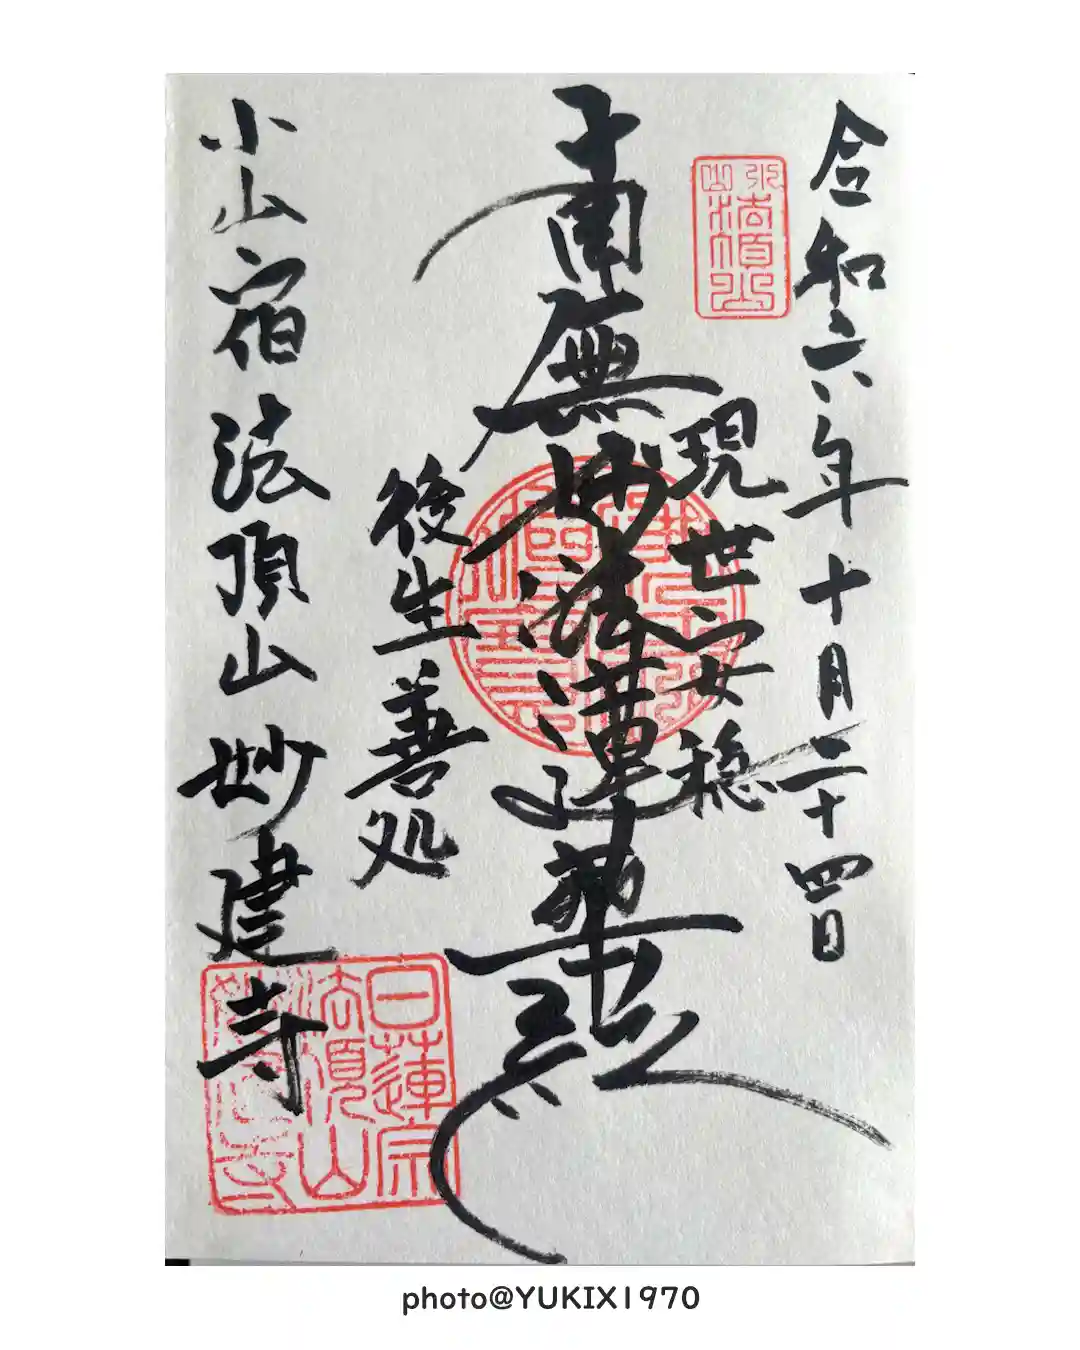 令和六年十月二十四日
現世安穏
南無妙法蓮華経
後生善処
小山宿法頂山妙建寺
日蓮宗
法頂山
妙建寺
photo@YUKIX1970